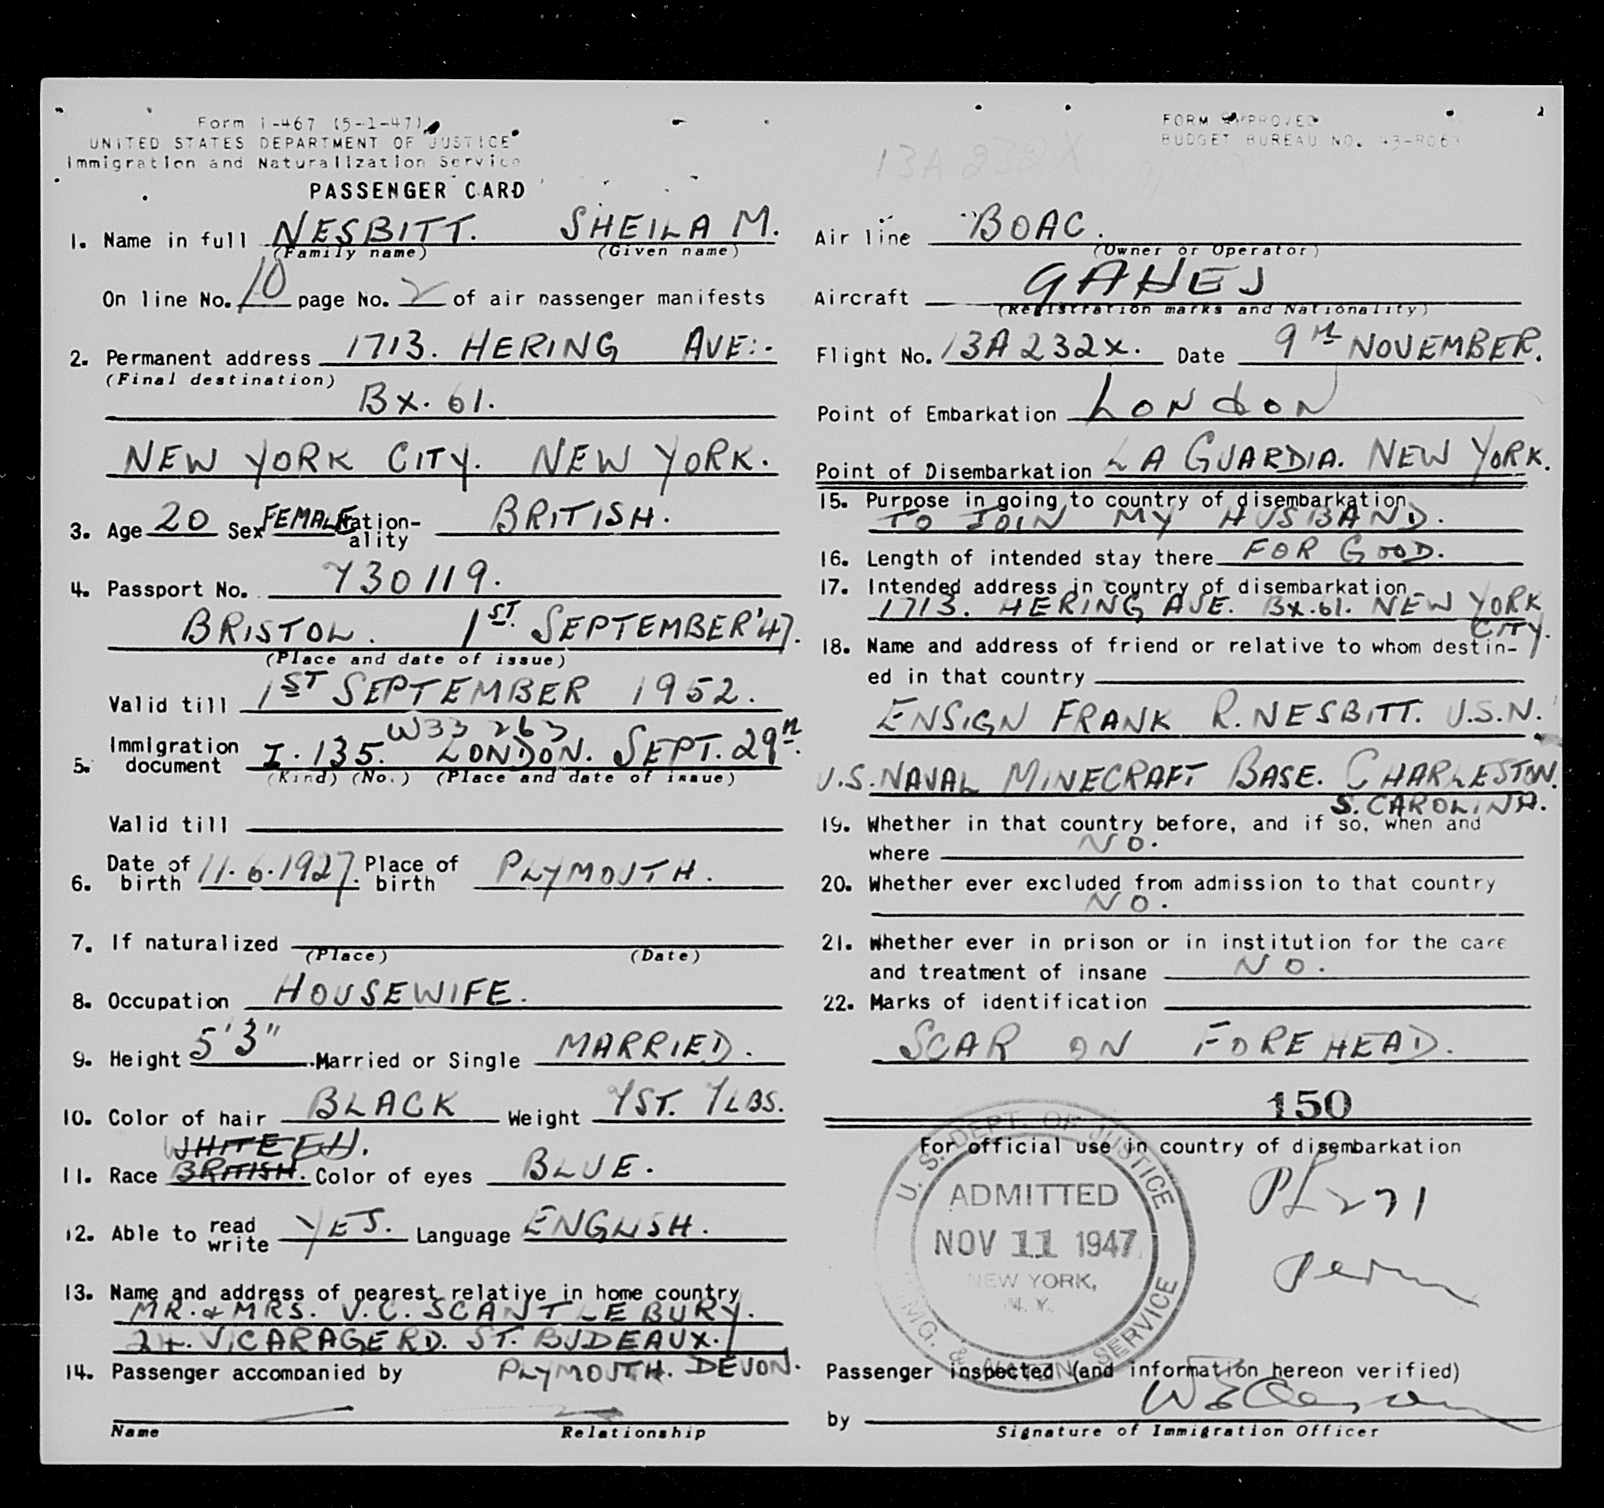 Form I-467 (5-1-47)
UNITED STATES DEPARTMENT OF JUSTICE
Immigration and Naturalization Service
PASSENGER CARD
1. Name in full NESBITT. SHEILA M.
(Family name) (Given name)
On line No. 10 page No. 2 of air passenger manifests
2. Permanent address 1713. HERING AVE:.
(Final destination)
BX. 61.
NEW YORK CITY. NEW YORK.
3. Age 20 Sex FEMALE Nationality BRITISH.
4. Passport No. 730119.
BRISTOL. 1ST. SEPTEMBER'47.
(Place and date of issue)
Valid till 1ST SEPTEMBER 1952.
W33 263
5. Immigration document I.135. LONDON. SEPT. 29th.
(Kind) (No.) (Place and date of issue)
Valid till
6. Date of birth 11.6.1927. Place of birth PLYMOUTH.
7. If naturalized
(Place) (Date)
8. Occupation HOUSEWIFE.
9. Height 5'3" Married or Single MARRIED.
10. Color of hair BLACK Weight 7ST. 7LBS.
WHITE EH.
11. Race BRITISH. Color of eyes BLUE.
12. Able to read write YES. Language ENGLISH.
13. Name and address of nearest relative in home country
MR. & MRS. V.C. SCANTLEBURY.
24. VICARAGE RD. ST. BUDEAUX.
PLYMOUTH. DEVON.
14. Passenger accompanied by
Name Relationship
FORM APPROVED
BUDGET BUREAU NO. 43-R063
13A 232X
Air line BOAC.
(Owner or Operator)
Aircraft GAHEJ
(Registration marks and Nationality)
Flight No. 13A232X. Date 9TH NOVEMBER.
Point of Embarkation LONDON
Point of Disembarkation LA GUARDIA. NEW YORK.
15. Purpose in going to country of disembarkation
TO JOIN MY HUSBAND.
16. Length of intended stay there FOR GOOD.
17. Intended address in country of disembarkation
1713. HERING AVE. BX.61. NEW YORK
CITY.
18. Name and address of friend or relative to whom destin-
ed in that country
ENSIGN FRANK R. NESBITT. U.S.N.
U.S. NAVAL MINECRAFT BASE. CHARLESTON.
S. CAROLINA.
19. Whether in that country before, and if so, when and
where NO.
20. Whether ever excluded from admission to that country
NO.
21. Whether ever in prison or in institution for the care
and treatment of insane NO.
22. Marks of identification
SCAR ON FOREHEAD.
150
For official use in country of disembarkation
U. S. DEPT. OF JUSTICE
ADMITTED
NOV 11 1947
NEW YORK,
N. Y.
IMMG. & NAT'ON SERVICE
PL 271
Passenger inspected (and information hereon verified)
by
Signature of Immigration Officer